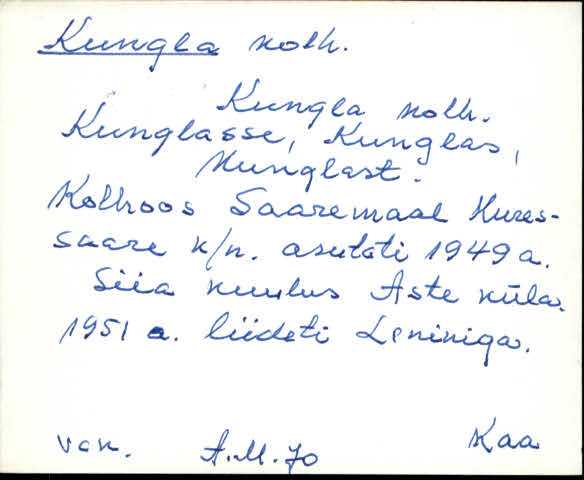 Kungla kolh.
Kungla kolh.
Kunglasse, Kunglas,
Kunglast.
Kolhoos Saaremaal Kures-
saare k/n. asutati 1949 a.
Siia kuulus Aste küla.
1951 a. liideti Leniniga.
van. A.M.70 Kaa